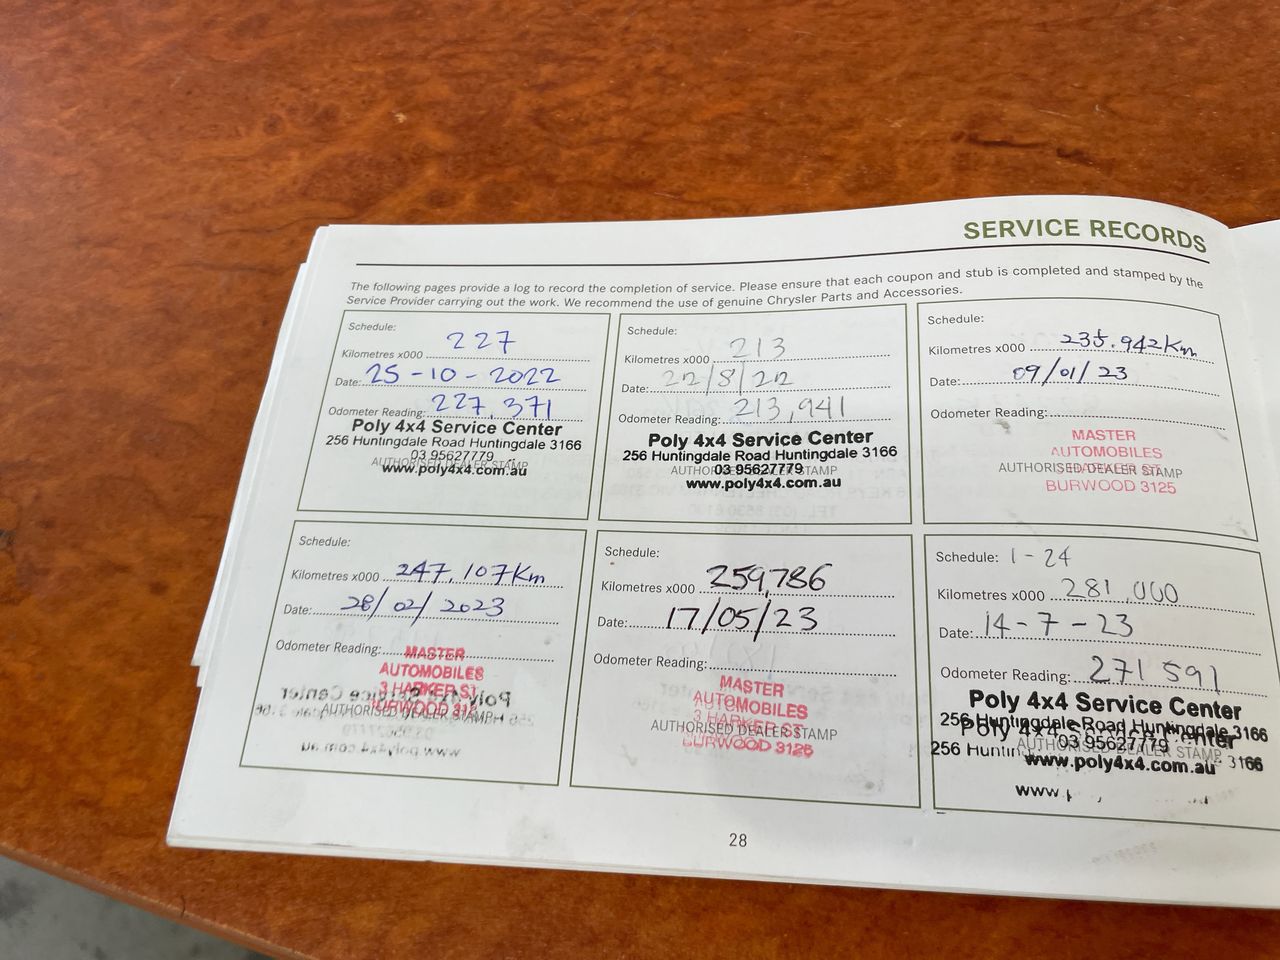 SERVICE RECORDS
The following pages provide a log to record the completion of service. Please ensure that each coupon and stub is completed and stamped by the
Service Provider carrying out the work. We recommend the use of genuine Chrysler Parts and Accessories.
Schedule:
Kilometres x000 227
Date: 25-10-2022
Odometer Reading: 227,371
Poly 4x4 Service Center
256 Huntingdale Road Huntingdale 3166
03 95627779
AUTHORISED DEALER STAMP
www.poly4x4.com.au
Schedule:
Kilometres x000 213
Date: 22/8/22
Odometer Reading: 213,941
Poly 4x4 Service Center
256 Huntingdale Road Huntingdale 3166
AUTHORISED DEALER STAMP
03 95627779
www.poly4x4.com.au
Schedule:
Kilometres x000 235.942Km
Date: 09/01/23
Odometer Reading:
MASTER
AUTOMOBILES
AUTHORISED DEALER STAMP
BURWOOD 3125
Schedule:
Kilometres x000 247,107Km
Date: 28/02/2023
Odometer Reading:
MASTER
AUTOMOBILES
3 HARKER ST
AUTHORISED DEALER STAMP
BURWOOD 312
Schedule:
Kilometres x000 259,786
Date: 17/05/23
Odometer Reading:
MASTER
AUTOMOBILES
3 HARKER ST
AUTHORISED DEALER STAMP
BURWOOD 3125
Schedule: 1-24
Kilometres x000 281,000
Date: 14-7-23
Odometer Reading: 271 591
Poly 4x4 Service Center
256 Huntingdale Road Huntingdale 3166
Poly 4x4 Service Center
03 95627779
AUTHORISED DEALER STAMP
256 Huntin 3166
www.poly4x4.com.au
www.
28